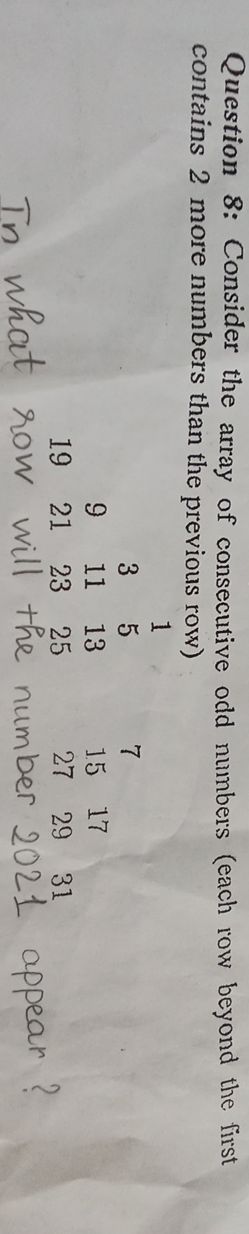 Question 8: Consider the array of consecutive odd numbers (each row beyond the first
contains 2 more numbers than the previous row)
1
3 5 7
9 11 13 15 17
19 21 23 25 27 29 31
In what row will the number 2021 appear?